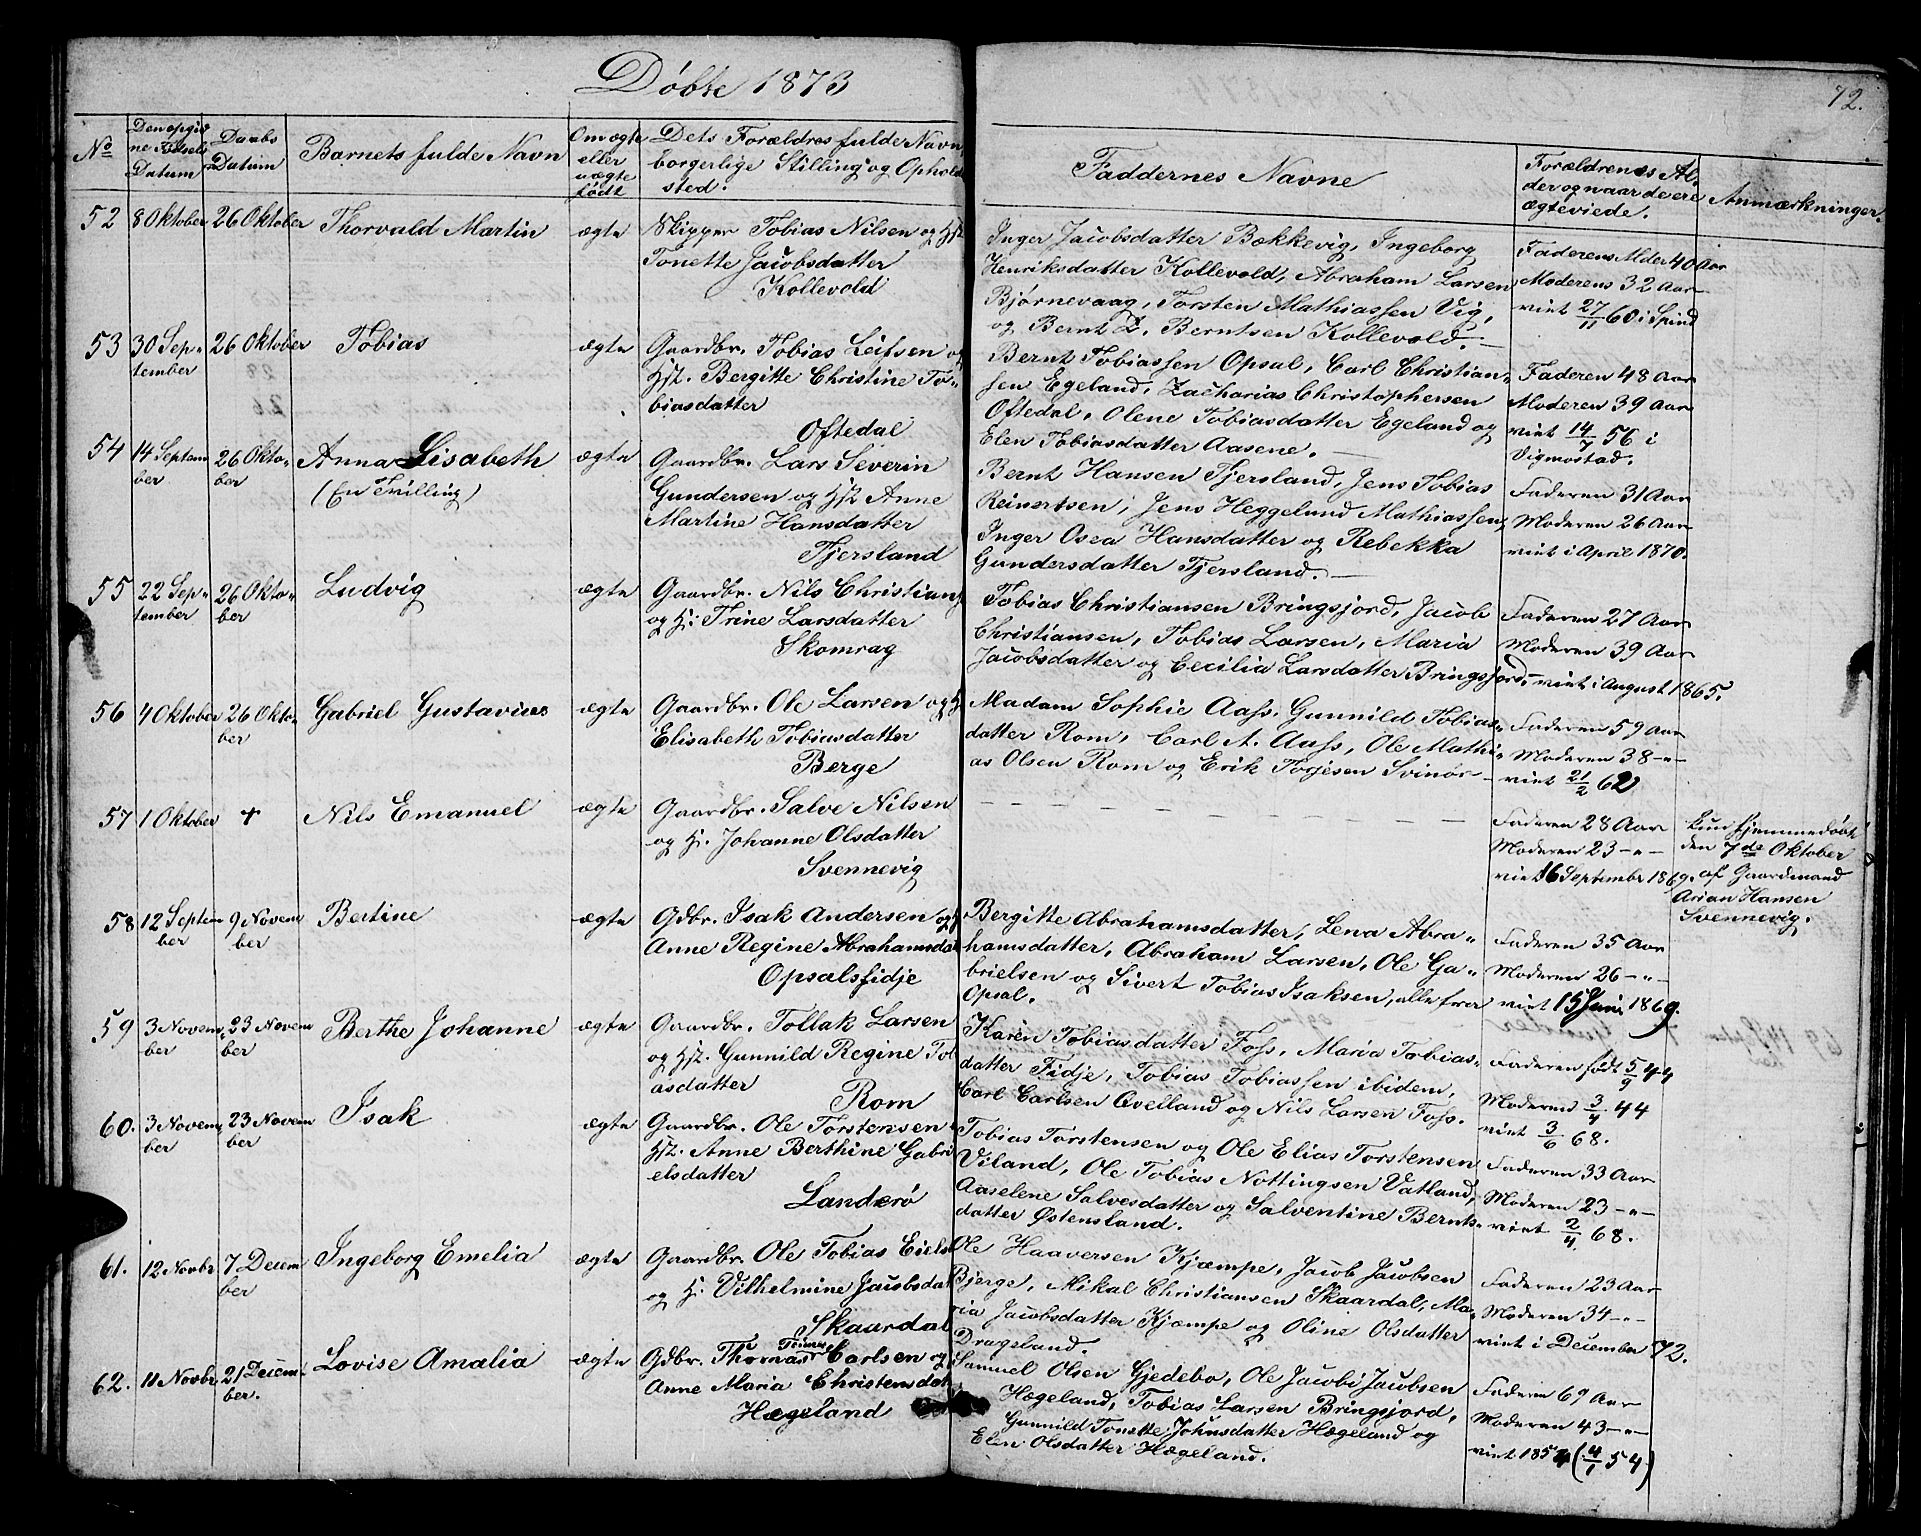 Døbte 1873
72.
No
Den opgiv
ne Fødsels
Datum
Daabs
Datum
Barnets fulde Navn
Om ægte
eller
uægte
født
Dets Forældres fulde Navn
borgerlige Stilling og Ophold
sted.
Faddernes Navne
Forældrenes Al
der og naar de ere
ægteviede.
Anmærkninger.
52 8 Oktober 26 Oktober Thorvald Martin ægte Skipper Tobias Nilsen og
Tonette Jacobsdatter
Kollevold
Inger Jacobsdatter Bækkevig, Ingeborg
Henriksdatter Kollevold, Abraham Larsen
Bjørnevaag, Torsten Mathiassen Vig,
og Bernt Z. Berntsen Kollevold.
Faderens Alder 40 Aar
Moderens 32 Aar
viet 27/11 60 i Spind
53 30 Sep-
tember 26 Oktober Tobias ægte Gaardbr. Tobias Leifsen og
Hst. Bergitte Christine To-
biasdatter
Oftedal
Bernt Tobiassen Opsal, Carl Christian-
sen Egeland, Zacharias Christophersen
Oftedal, Olene Tobiasdatter Egeland og
Elen Tobiasdatter Aasene.
Faderen 48 Aar
Moderen 39 Aar
viet 14/7 56 i
Vigmostad.
54 14 Septem
ber 26 Okto-
ber Anna Lisabeth
(En Tvilling)
ægte Gaardbr. Lars Severin
Gundersen og Hst Anne
Martine Hansdatter
Tjersland
Bernt Hansen Tjersland, Jens Tobias
Reinertsen, Jens Heggelund Mathiassen,
Inger Osea Hansdatter og Rebekka
Gundersdatter Tjersland.
Faderen 31 Aar
Moderen 26 Aar
viet i April 1870.
55 22 Sep-
tember 26 Okto-
ber Ludvig ægte Gaardbr. Nils Christians
og H. Trine Larsdatter
Skomrag
Tobias Christiansen Bringsjord, Jacob
Christiansen, Tobias Larsen, Maria
Jacobsdatter og Cecilia Larsdatter Bringsjord.
Faderen 27 Aar
Moderen 39 Aar
viet i August 1865.
56 4 Oktober 26 Okto-
ber Gabriel Gustavius ægte Gaardbr. Ole Larsen og H
Elisabeth Tobiasdatter
Berge
Madam Sophie Aass, Gunnild Tobias-
datter Rom, Carl A. Aass, Ole Mathi-
as Olsen Rom og Erik Torjesen Svinør
Faderen 59 Aar
Moderen 38 -"-
viet 21/2 62
57 1 Oktober + Nils Emanuel ægte Gaardbr. Salve Nilsen
og H. Johanne Olsdatter
Svennevig
Faderen 28 Aar
Moderen 23 -"-
viet 16 September 1869.
Kun hjemmedøbt
den 7de Oktober
af Gaardmand
Arian Hansen
Svennevig.
58 12 Septem
ber 9 Novem
ber Bertine ægte Gdbr. Isak Andersen og H
Anne Regine Abrahamsdat
Opsalsfidje
Bergitte Abrahamsdatter, Lena Abra-
hamsdatter, Abraham Larsen, Ole Ga-
brielsen og Sivert Tobias Isaksen, alle fra
Opsal.
Faderen 35 Aar
Moderen 26 -"-
viet 15 Juni 1869.
59 3 Novem
ber 23 Novem
ber Berthe Johanne ægte Gaardbr. Tollak Larsen
og Hst. Gunnild Regine Tobi
asdatter
Rom
Karen Tobiasdatter Foss, Maria Tobias-
datter Fidje, Tobias Tobiassen ibidem,
Carl Carlsen Øvelland og Nils Larsen Foss.
Faderen født 5/9 44
Moderen 3/4 44
viet 3/6 68.
60. 3 Novem
ber 23 Novem
ber Isak ægte Gaardbr. Ole Torstensen
Hst. Anne Berthine Gabri
elsdatter
Landerø
Tobias Torstensen og Ole Elias Torstensen
Viland, Ole Tobias Nottingsen Vatland,
Aaselene Salvesdatter og Salventine Bernts-
datter Østensland.
Faderen 33 Aar
Moderen 23 -"-
viet 2/4 68.
61. 12 Novbr. 7 Decem
ber Ingeborg Emelia ægte Gaardbr. Ole Tobias Eiels
og H. Vilhelmine Jacobsdat
Skaardal
Ole Haaversen Kjæmpe, Jacob Jacobsen
Bjerge, Mikal Christiansen Skaardal, Ma-
ria Jacobsdatter Kjæmpe og Oline Olsdatter
Drageland.
Faderen 23 Aar
Moderen 34 -"-
viet i December 72.
62. 11 Novbr. 21 Decem-
ber. Lovise Amalia ægte Gdbr. Thomas Carlsen og
Anne Maria Christensdat
Hægeland
Samuel Olsen Gjedebo, Ole Jacobi Jacobsen
Hægeland, Tobias Larsen Bringsjord,
Gunnild Tonette Johnsdatter Hægeland og
Elen Olsdatter Hægeland.
Faderen 69 Aar
Moderen 43 -"-
viet 1854 (4/1 54)